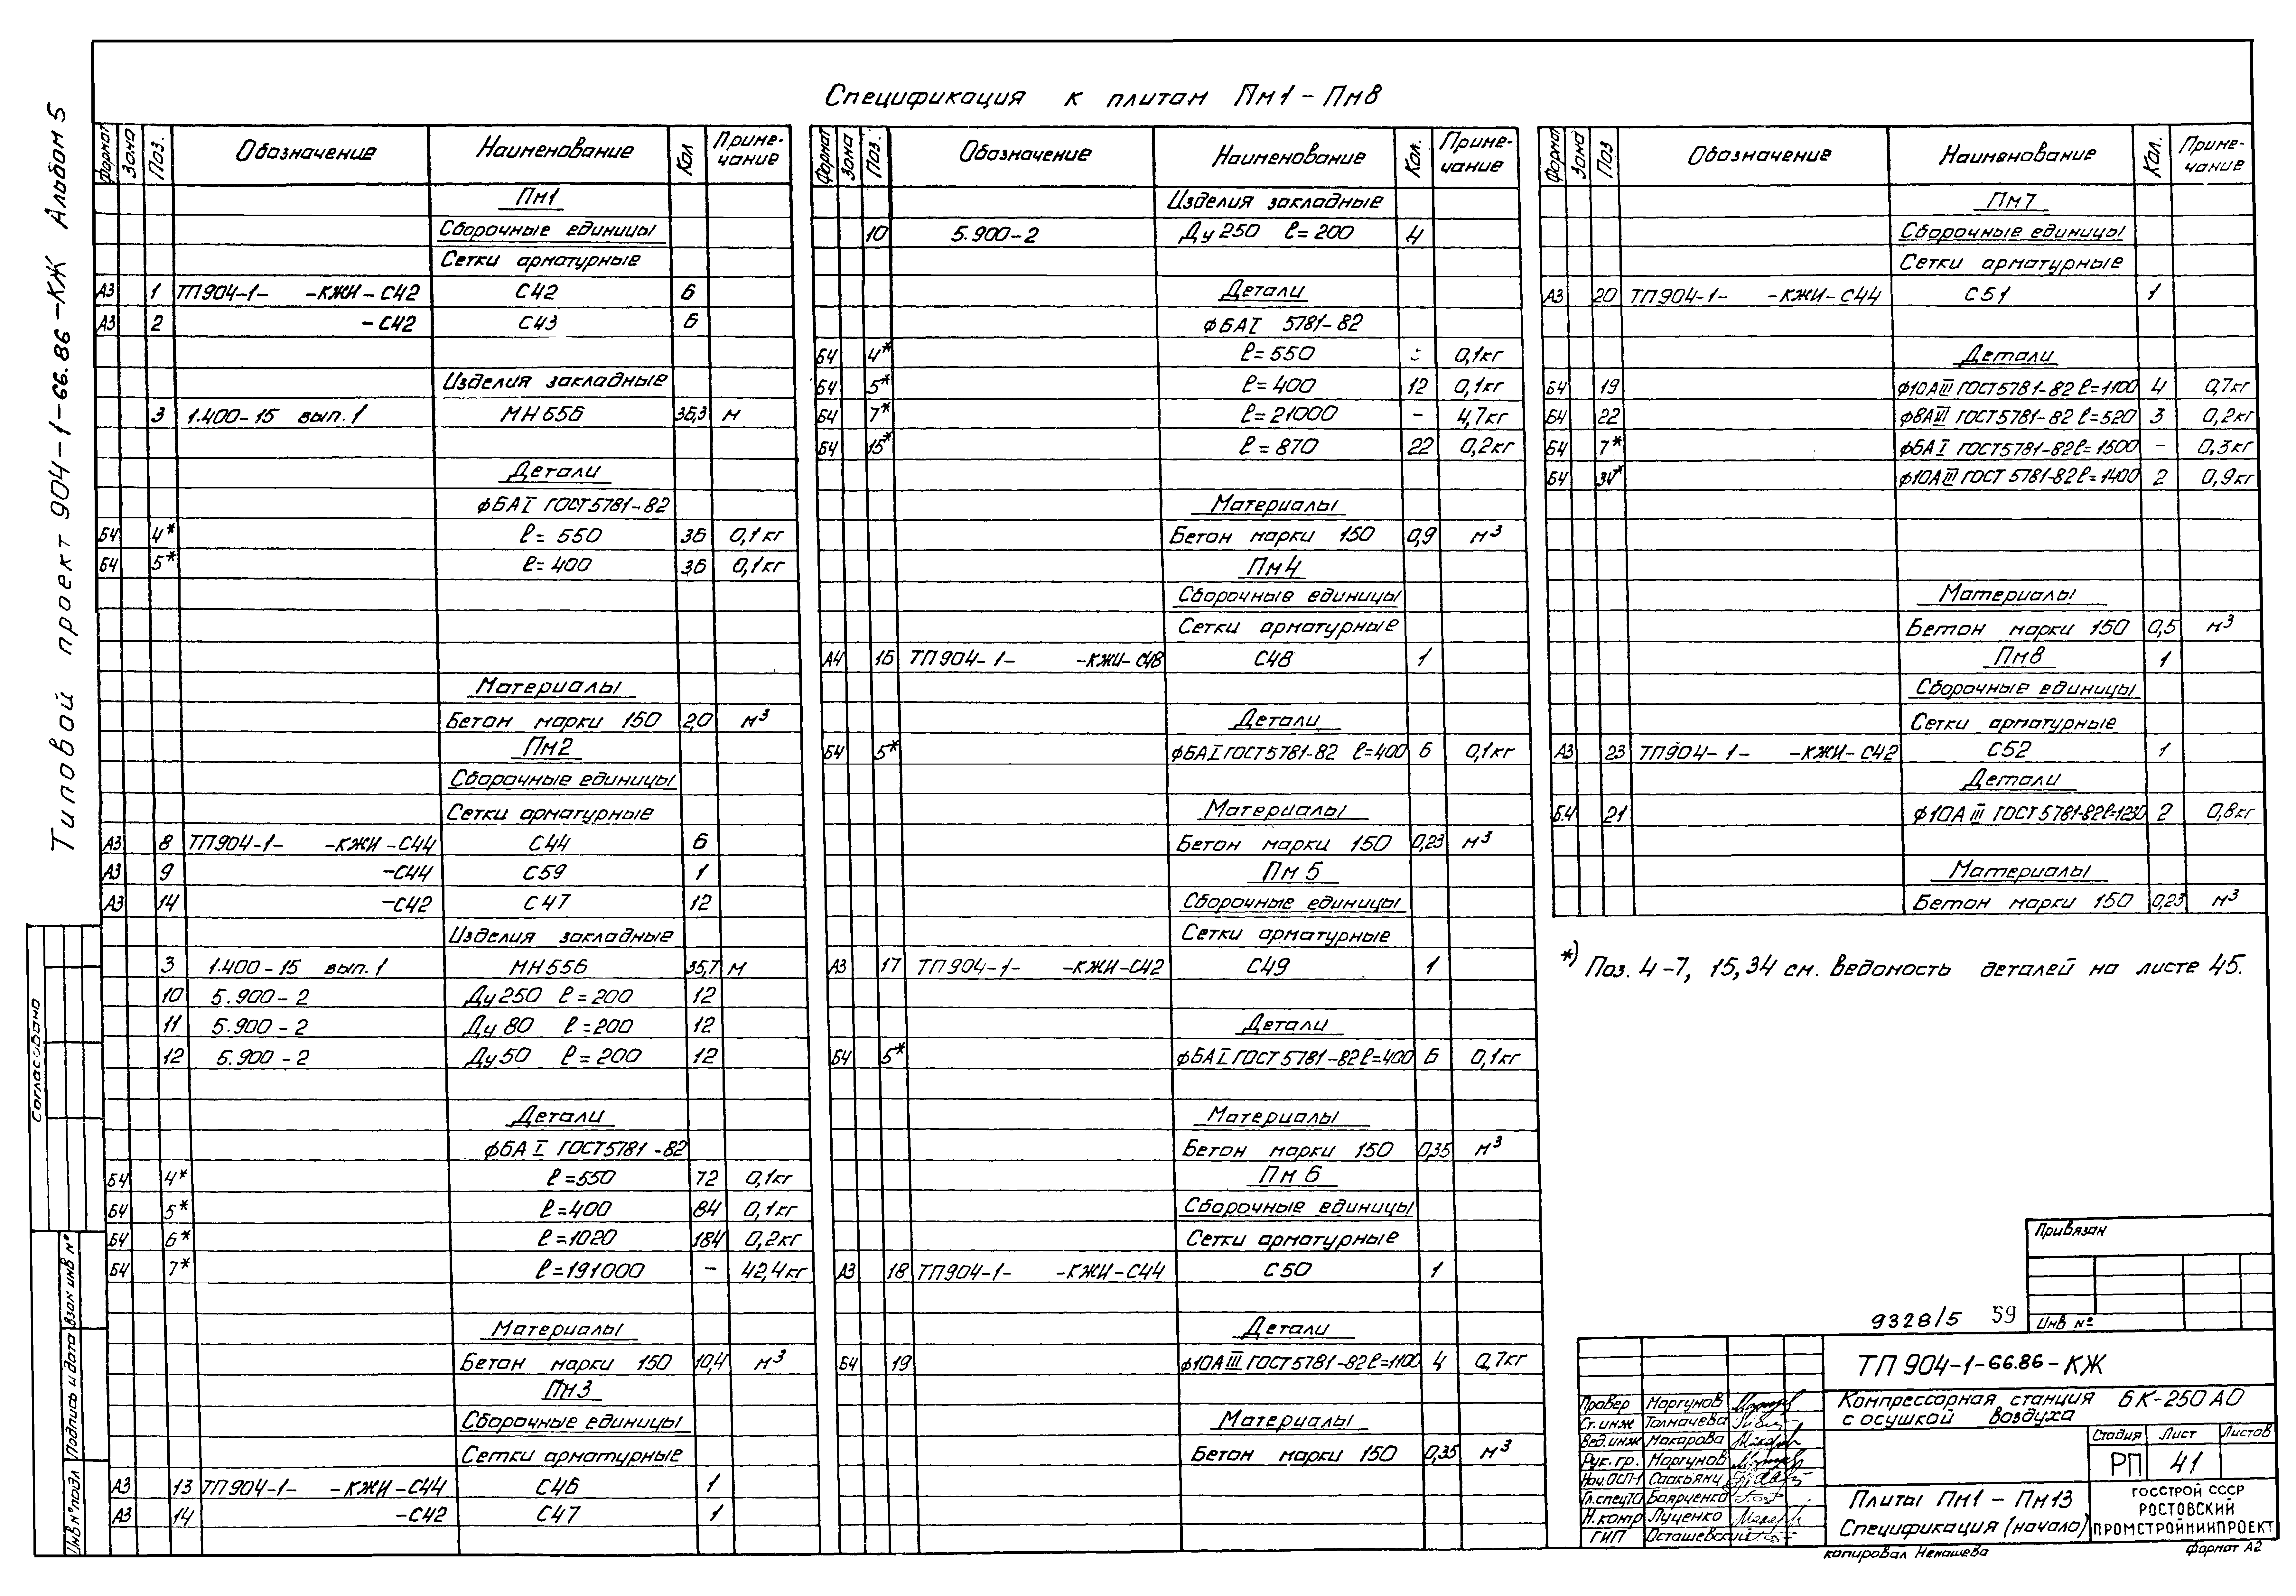 Типовой проект 904-1-66.86-КЖ Альбом 5
Спецификация к плитам Пм1-Пм8
Формат Зона Поз. Обозначение Наименование Кол Приме-чание
Пм1
Сборочные единицы
Сетки арматурные
А3 1 ТП904-1- -КЖИ-С42 С42 6
А3 2 -С42 С43 6
Изделия закладные
3 1.400-15 вып.1 МН556 36,3 м
Детали
ф6АI ГОСТ5781-82
Б4 4* ℓ=550 36 0,1кг
Б4 5* ℓ=400 36 0,1кг
Материалы
Бетон марки 150 2,0 м³
Пм2
Сборочные единицы
Сетки арматурные
А3 8 ТП904-1- -КЖИ-С44 С44 6
А3 9 -С44 С59 1
А3 14 -С42 С47 12
Изделия закладные
3 1.400-15 вып.1 МН556 35,7 м
10 5.900-2 Ду250 ℓ=200 12
11 5.900-2 Ду80 ℓ=200 12
12 5.900-2 Ду50 ℓ=200 12
Детали
ф6АI ГОСТ5781-82
Б4 4* ℓ=550 72 0,1кг
Б4 5* ℓ=400 84 0,1кг
Б4 6* ℓ=1020 184 0,2кг
Б4 7* ℓ=191000 - 42,4кг
Материалы
Бетон марки 150 10,4 м³
Пм3
Сборочные единицы
Сетки арматурные
А3 13 ТП904-1- -КЖИ-С44 С46 1
А3 14 -С42 С47 1
Формат Зона Поз. Обозначение Наименование Кол. Приме-чание
Изделия закладные
10 5.900-2 Ду250 ℓ=200 4
Детали
ф6АI 5781-82
Б4 4* ℓ=550 0,1кг
Б4 5* ℓ=400 12 0,1кг
Б4 7* ℓ=21000 - 4,7кг
Б4 15* ℓ=870 22 0,2кг
Материалы
Бетон марки 150 0,9 м³
Пм4
Сборочные единицы
Сетки арматурные
А4 16 ТП904-1- -КЖИ-С48 С48 1
Детали
Б4 5* ф6АI ГОСТ5781-82 ℓ=400 6 0,1кг
Материалы
Бетон марки 150 0,23 м³
Пм5
Сборочные единицы
Сетки арматурные
А3 17 ТП904-1- -КЖИ-С42 С49 1
Детали
Б4 5* ф6АI ГОСТ5781-82 ℓ=400 6 0,1кг
Материалы
Бетон марки 150 0,35 м³
Пм6
Сборочные единицы
Сетки арматурные
А3 18 ТП904-1- -КЖИ-С44 С50 1
Детали
Б4 19 ф10АIII ГОСТ5781-82 ℓ=1100 4 0,7кг
Материалы
Бетон марки 150 0,35 м³
Формат Зона Поз Обозначение Наименование Кол. Приме-чание
Пм7
Сборочные единицы
Сетки арматурные
А3 20 ТП904-1- -КЖИ-С44 С51 1
Детали
Б4 19 ф10АIII ГОСТ5781-82 ℓ=1100 4 0,7кг
Б4 22 ф8АIII ГОСТ5781-82 ℓ=520 3 0,2кг
Б4 7* ф6АI ГОСТ5781-82 ℓ=1500 - 0,3кг
Б4 34* ф10АIII ГОСТ5781-82 ℓ=1400 2 0,9кг
Материалы
Бетон марки 150 0,5 м³
Пм8 1
Сборочные единицы
Сетки арматурные
А3 23 ТП904-1- -КЖИ-С42 С52 1
Детали
Б.4 21 ф10АIII ГОСТ5781-82 ℓ=1230 2 0,8кг
Материалы
Бетон марки 150 0,23 м³
*) Поз. 4-7, 15,34 см. ведомость деталей на листе 45.
Согласовано
Инв № подл Подпись и дата Взам инв №
Привязан
Инв №
9328/5 59
ТП 904-1-66.86-КЖ
Компрессорная станция 6К-250АО
с осушкой воздуха
Провер Моргунов
Ст.инж Толмачева
Вед.инж Макарова
Рук.гр. Моргунов
Нач.ОСП-1 Саакьянц
Гл.спецТО Боярченко
Н.контр Луценко
ГИП Осташевский
Стадия Лист Листов
РП 41
Плиты Пм1-Пм13
Спецификация (начало)
ГОССТРОЙ СССР
РОСТОВСКИЙ
ПРОМСТРОЙНИИПРОЕКТ
копировал Ненашева
Формат А2